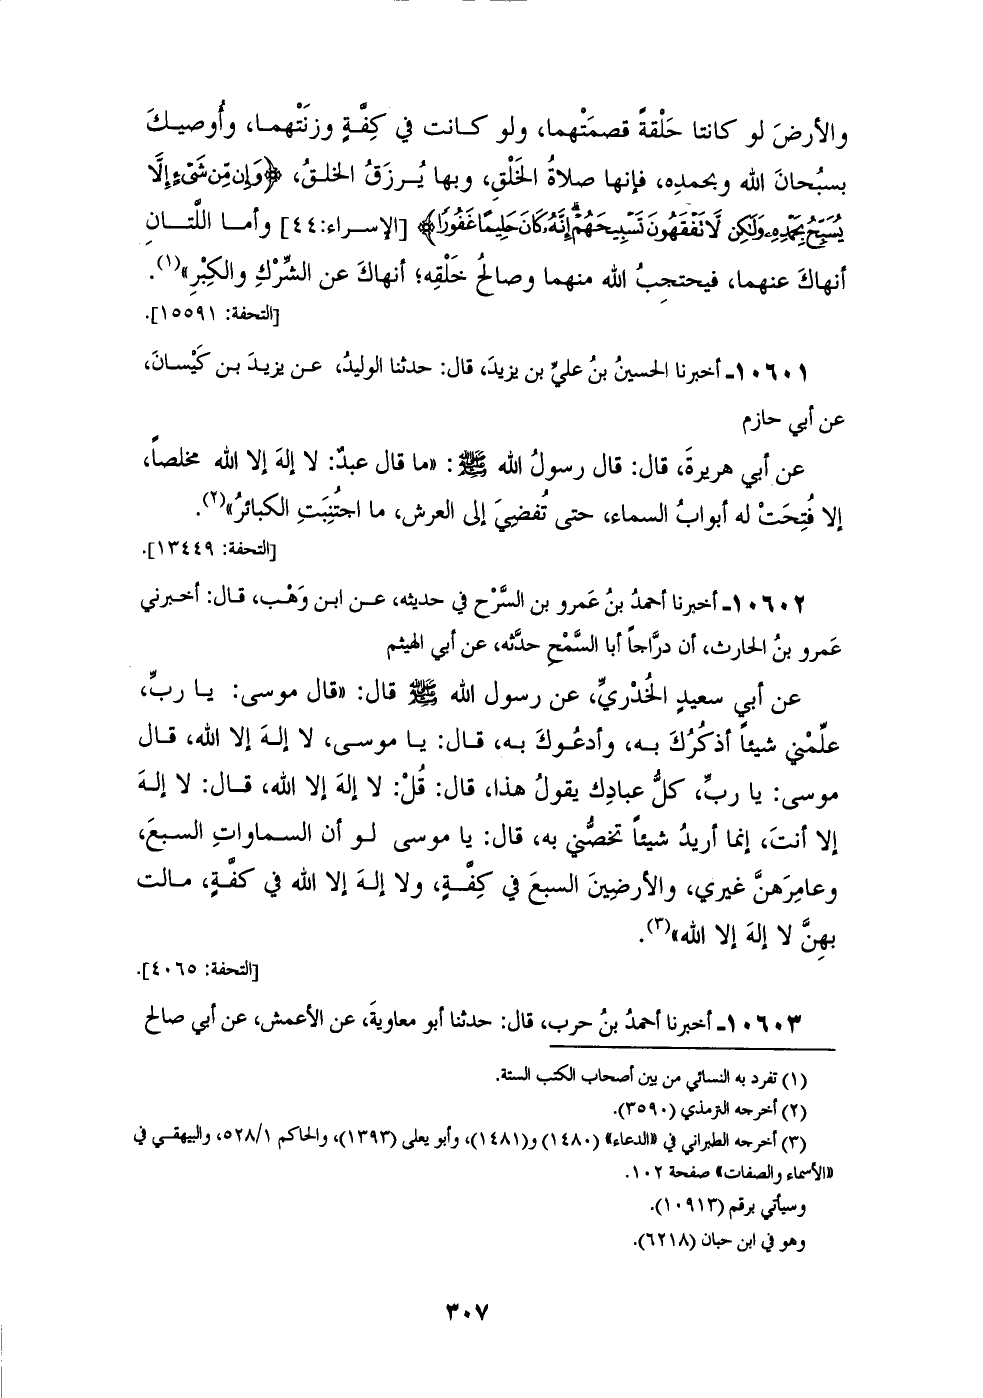 والأرضَ لو كانتا حَلْقةً قصمَتْهما، ولو كـانت في كِفَّةٍ وزنَتْهمـا، وأُوصيـكَ
بسبُحانَ الله وبحمدِه، فإنها صلاةُ الخَلْقِ، وبها يُـرزَقُ الخلـقُ، ﴿وَإِن مِّن شَىْءٍ إِلَّا
يُسَبِّحُ بِحَمْدِهِۦ وَلَٰكِن لَّا تَفْقَهُونَ تَسْبِيحَهُمْ ۗ إِنَّهُۥ كَانَ حَلِيمًا غَفُورًا﴾ [الإسـراء:٤٤] وأمـا اللَّتـانِ
أنهاكَ عنهما، فيحتجبُ الله منهما وصالحُ خَلْقِه؛ أنهاكَ عن الشِّرْكِ والكِبْرِ»(١).
[التحفة: ١٥٥٩١].
١٠٦٠١ـ أخبرنا الحسينُ بنُ عليِّ بن يزيدَ، قال: حدثنا الوليدُ، عـن يزيـدَ بـن كَيْسـانَ،
عن أبي حازم
عن أبي هريرةَ، قال: قال رسولُ الله ﷺ: «ما قال عبدٌ: لا إلهَ إلا الله مخلصاً،
إلا فُتِحَتْ له أبوابُ السماء، حتى تُفضِيَ إلى العرش، ما اجتُنِبَتِ الكبائرُ»(٢).
[التحفة: ١٣٤٤٩].
١٠٦٠٢ـ أخبرنا أحمدُ بنُ عَمرو بن السَّرْح في حديثه، عـن ابـن وَهْـب، قـال: أخـبرني
عَمرو بنُ الحارث، أن درَّاجاً أبا السَّمْحِ حدَّثه، عن أبي الهيثم
عن أبي سعيدٍ الخُدْريِّ، عن رسول الله ﷺ قال: «قال موسى: يـا ربِّ،
علِّمْني شيئاً أذكُرُكَ بـه، وأدعُوكَ بـه، قـال: يـا موسـى، لا إلـهَ إلا الله، قـال
موسى: يا ربِّ، كلُّ عبادِك يقولُ هذا، قال: قُلْ: لا إلهَ إلا الله، قـال: لا إلـهَ
إلا أنتَ، إنما أريدُ شيئاً تخصُّني به، قال: يا موسى لـو أن السـماواتِ السـبعَ،
وعامِرَهنَّ غيري، والأرضِينَ السبعَ في كِفَّـةٍ، ولا إلـهَ إلا الله في كفَّةٍ، مـالت
بهِنَّ لا إلهَ إلا الله»(٣).
[التحفة: ٤٠٦٥].
١٠٦٠٣ـ أخبرنا أحمدُ بنُ حرب، قال: حدثنا أبو معاويةَ، عن الأعمش، عن أبي صالح
(١) تفرد به النسائي من بين أصحاب الكتب الستة.
(٢) أخرجه الترمذي (٣٥٩٠).
(٣) أخرجه الطبراني في «الدعاء» (١٤٨٠) و(١٤٨١)، وأبو يعلى (١٣٩٣)، والحاكم ٥٢٨/١، والبيهقـي في
«الأسماء والصفات» صفحة ١٠٢.
وسيأتي برقم (١٠٩١٣).
وهو في ابن حبان (٦٢١٨).
٣٠٧